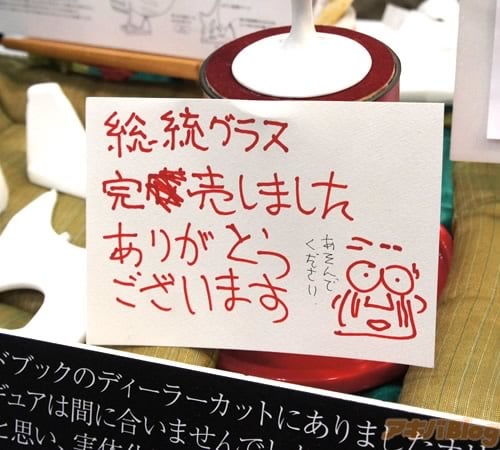 総統グラス
完売しました
ありがとう
ございます
あそんで
ください
ドブックのディーラーカットにありました
デュアは間に合いませんでし
と思い、実体化
アキバBlog